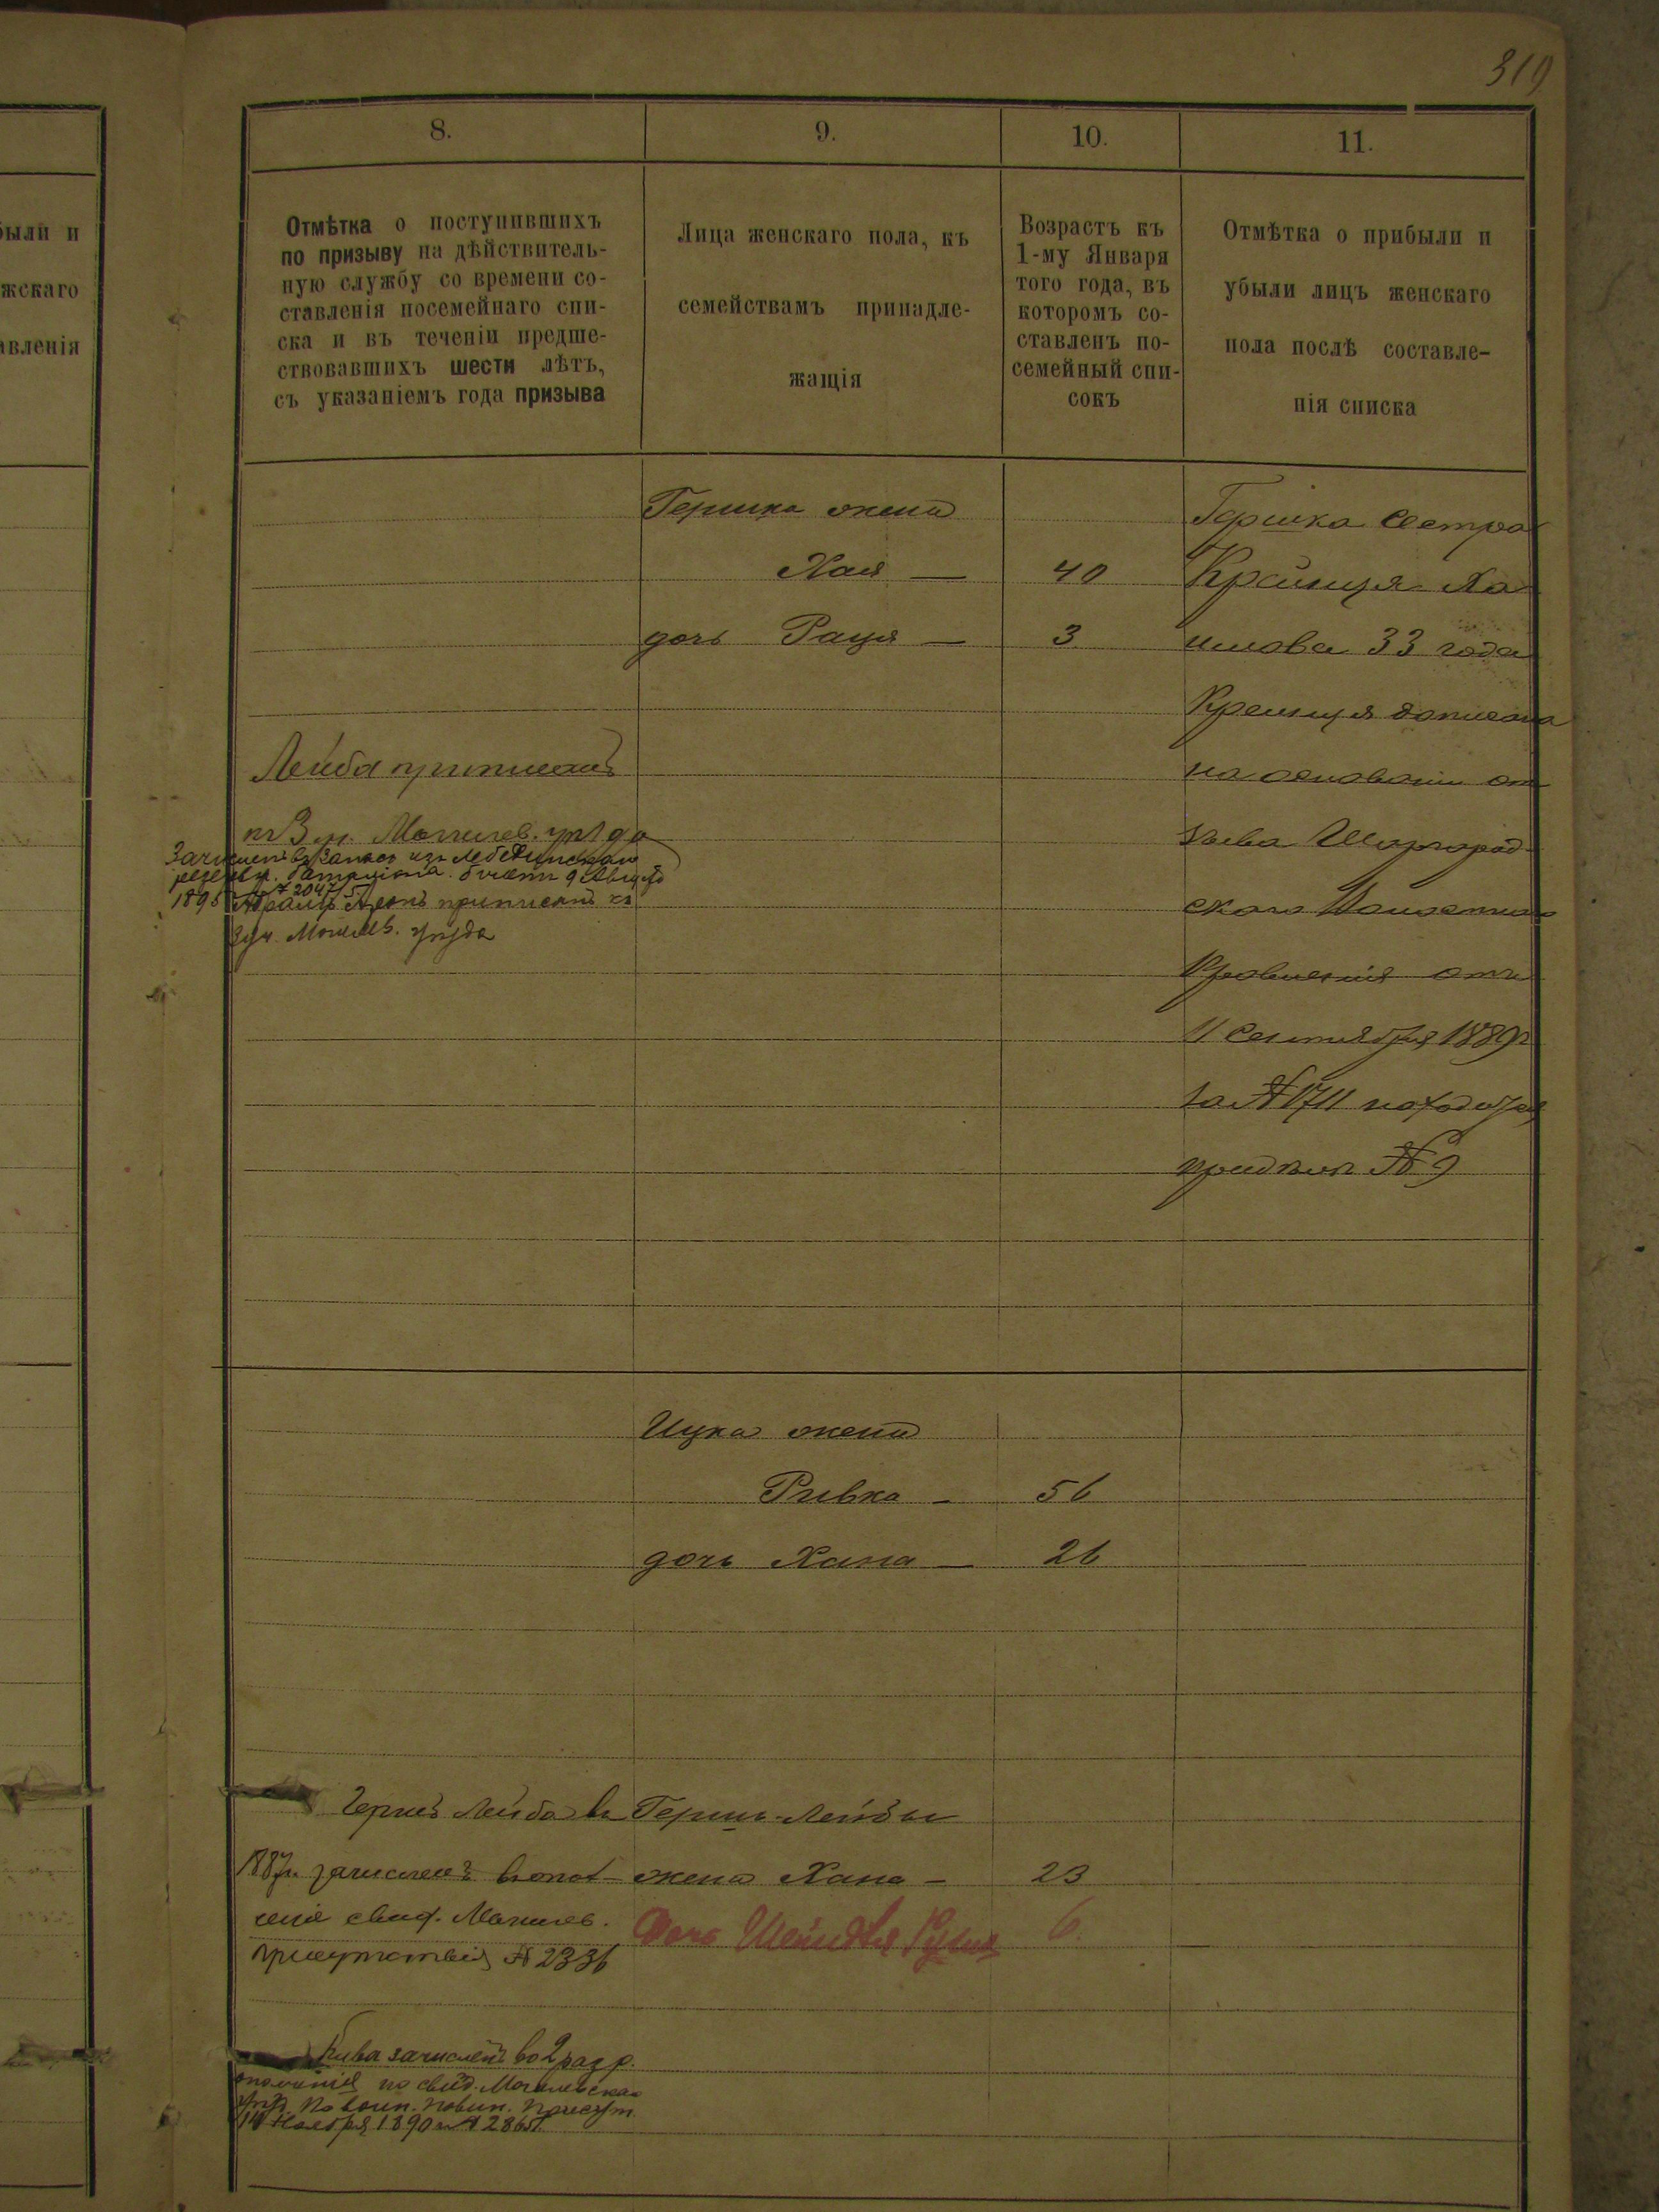 319
были и
жскаго
авленія
8.
9.
10.
11.
Отмѣтка о поступившихъ
по призыву на дѣйствитель-
ную службу со времени со-
ставленія посемейнаго спи-
ска и въ теченіи предше-
ствовавшихъ шести лѣтъ,
съ указаніемъ года призыва
Лица женскаго пола, къ
семействамъ принадле-
жащія
Возрастъ къ
1-му Января
того года, въ
которомъ со-
ставленъ по-
семейный спи-
сокъ
Отмѣтка о прибыли и
убыли лицъ женскаго
пола послѣ составле-
нія списка
Гершка жена
Хая — 40
дочь Рация — 3
Гершка сестра
Крейнця Ха
имова 33 года
Крейнця дописана
на основании от
зыва Шаргород
скаго
Правленія отъ
11 Сентября 1889 г
за № 1711 находится
при дѣлѣ № 9
Лейба приписанъ
къ 3 уч. Могилев. уѣзда
Зачисленъ въ запасъ изъ Лебединскаго
резервн. баталіона 9 Августа
1895 № 2047
Абрамъ приписанъ къ
3 уч. Могилев. уѣзда
Ицка жена
Ривка — 56
дочь Хана — 26
Гершъ Лейба въ
1887 г. зачисленъ в опол-
ченіе свид. Могилев.
присутствія № 2336
Гершъ-Лейбы
жена Хана — 23
Дочь 6.
Кива зачисленъ во 2 разр.
ополченія по свид. Могилевскаго
уѣзд. по воин. повин. присут.
14 Ноября 1890